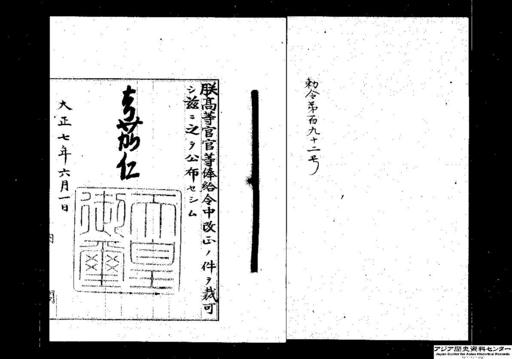 勅令第百九十二号
朕高等官官等俸給令中改正ノ件ヲ裁可
シ茲ニ之ヲ公布セシム
嘉仁
天皇御璽
大正七年六月一日
内閣
アジア歴史資料センター
Japan Center for Asian Historical Records